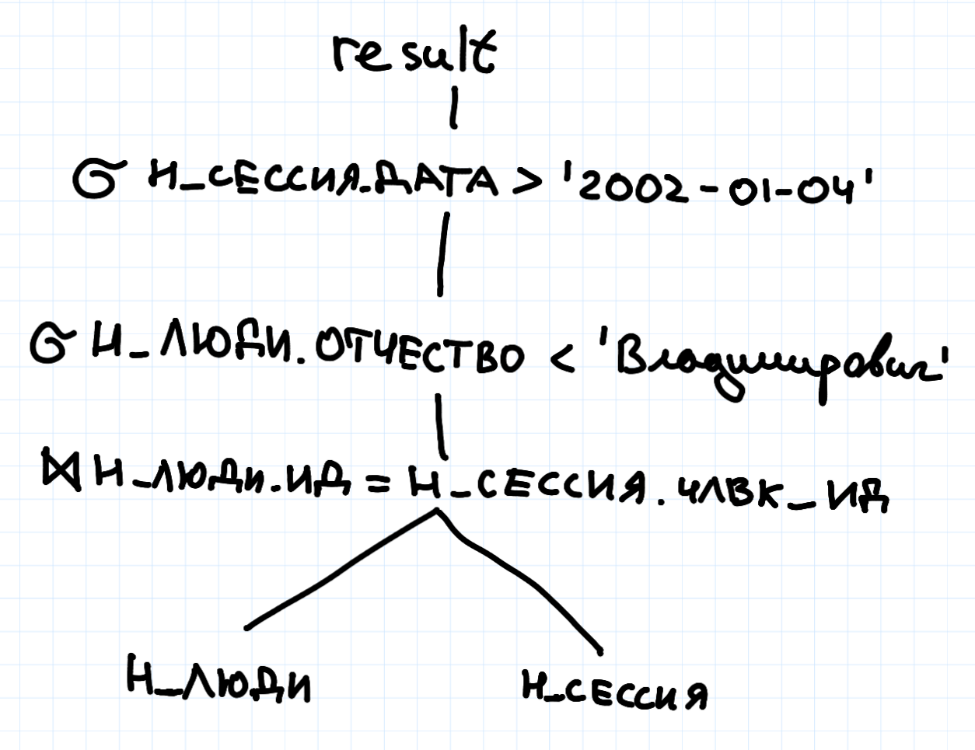 result
σ Н_СЕССИЯ.ДАТА > '2002-01-04'
σ Н_ЛЮДИ.ОТЧЕСТВО < 'Владимирович'
⋈ Н_ЛЮДИ.ИД = Н_СЕССИЯ.ЧЛВК_ИД
Н_ЛЮДИ Н_СЕССИЯ